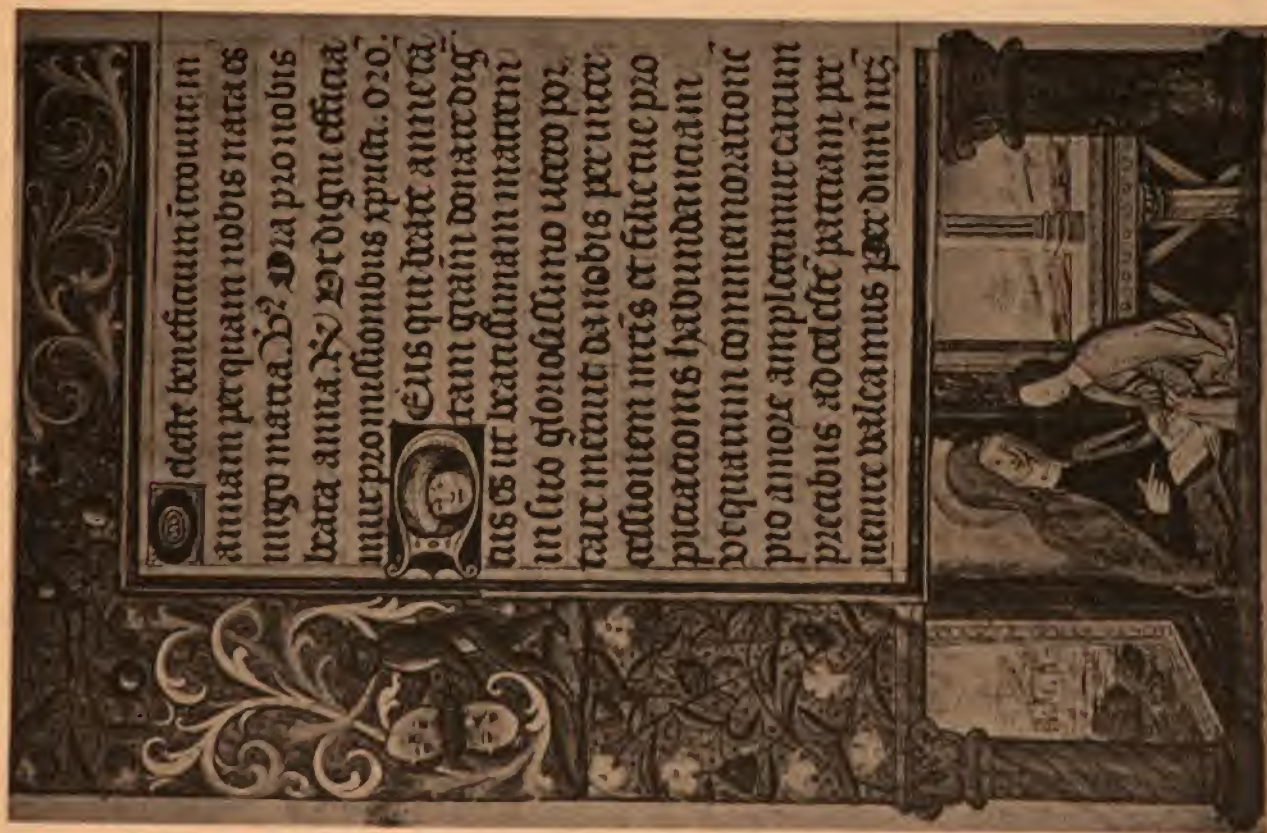 Celeste beneficium ītroiuit in
annam per quam nobis nata es
uirgo maria. V? Ora pro nobis
beata anna. R̷ Vt digni efficia
mur promissionibus xpristi. oro.
Deus qui beate anne tā
tam graām donare dig
tus es ut beatissimam matrem
in suo gloriosissimo utero por
tare meruit da nobis per inter
cessionem mrīs et filie tue pro
piciacionis habundanciam
vt quarum commemorationē
pio amore amplectimur earum
precibus ad celestē patriam per
uenire valeamus per dnm nrz